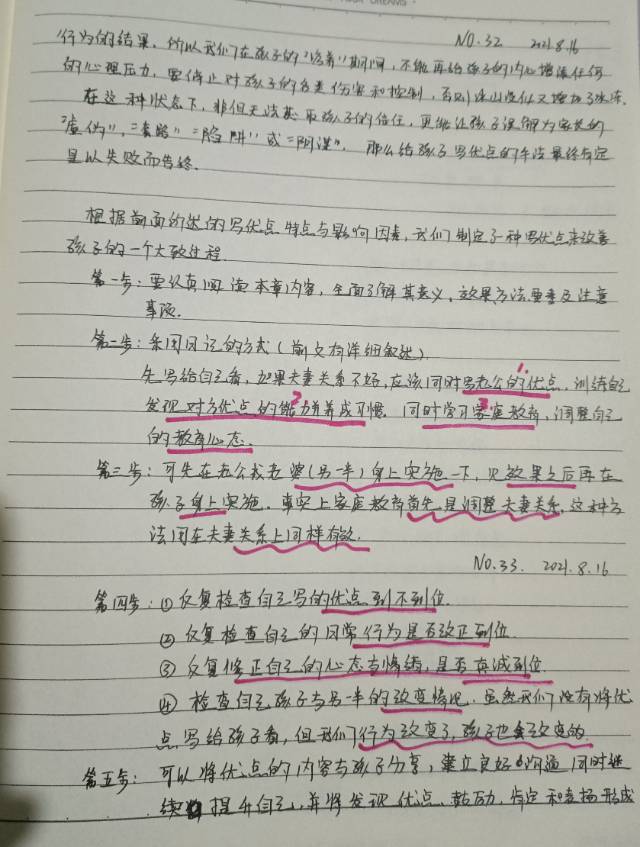 NO.32 2021.8.16
行为的结果，所以我们在孩子的"培养"期间，不能再给孩子的内心增添任何
的心理压力，要停止对孩子的各类伤害和控制，否则冰山将似又增加了冰冻。
在这种状态下，非但无法获取孩子的信任，更能让孩子误解为家长的
"虚伪"，"套路""陷阱"或"阴谋"，那么给孩子写优点的手法最终肯定
是以失败而告终。
根据前面所述的写优点特点与影响因素，我们制定了一种写优点来改善
孩子的一个大致过程
第一步：要认真阅读本章内容，全面了解其意义、效果方法要素及注意
事项。
第二步：采用日记的方式（前文有详细叙述）
先写给自己看，如果夫妻关系不好，应该同时写老公的优点，训练自己
发现对方优点的能力并养成习惯。同时学习家庭教育，调整自己
的教育心态。
第三步：可先在老公或老婆（另一半）身上实施一下，见效果之后再在
孩子身上实施。事实上家庭教育首先是调整夫妻关系，这种方
法用在夫妻关系上同样有效。
NO.33. 2021.8.16
第四步：①反复检查自己写的优点到不到位.
②反复检查自己的日常行为是否改正到位
③反复修正自己的心态与情绪，是否真诚到位.
④检查自己孩子与另一半的改变情况. 虽然我们没有将优
点写给孩子看，但我们行为改变了，孩子也会改变的.
第五步：可以将优点的内容与孩子分享，建立良好的沟通同时继
续提升自己，并将发现优点、鼓励、肯定和表扬形成